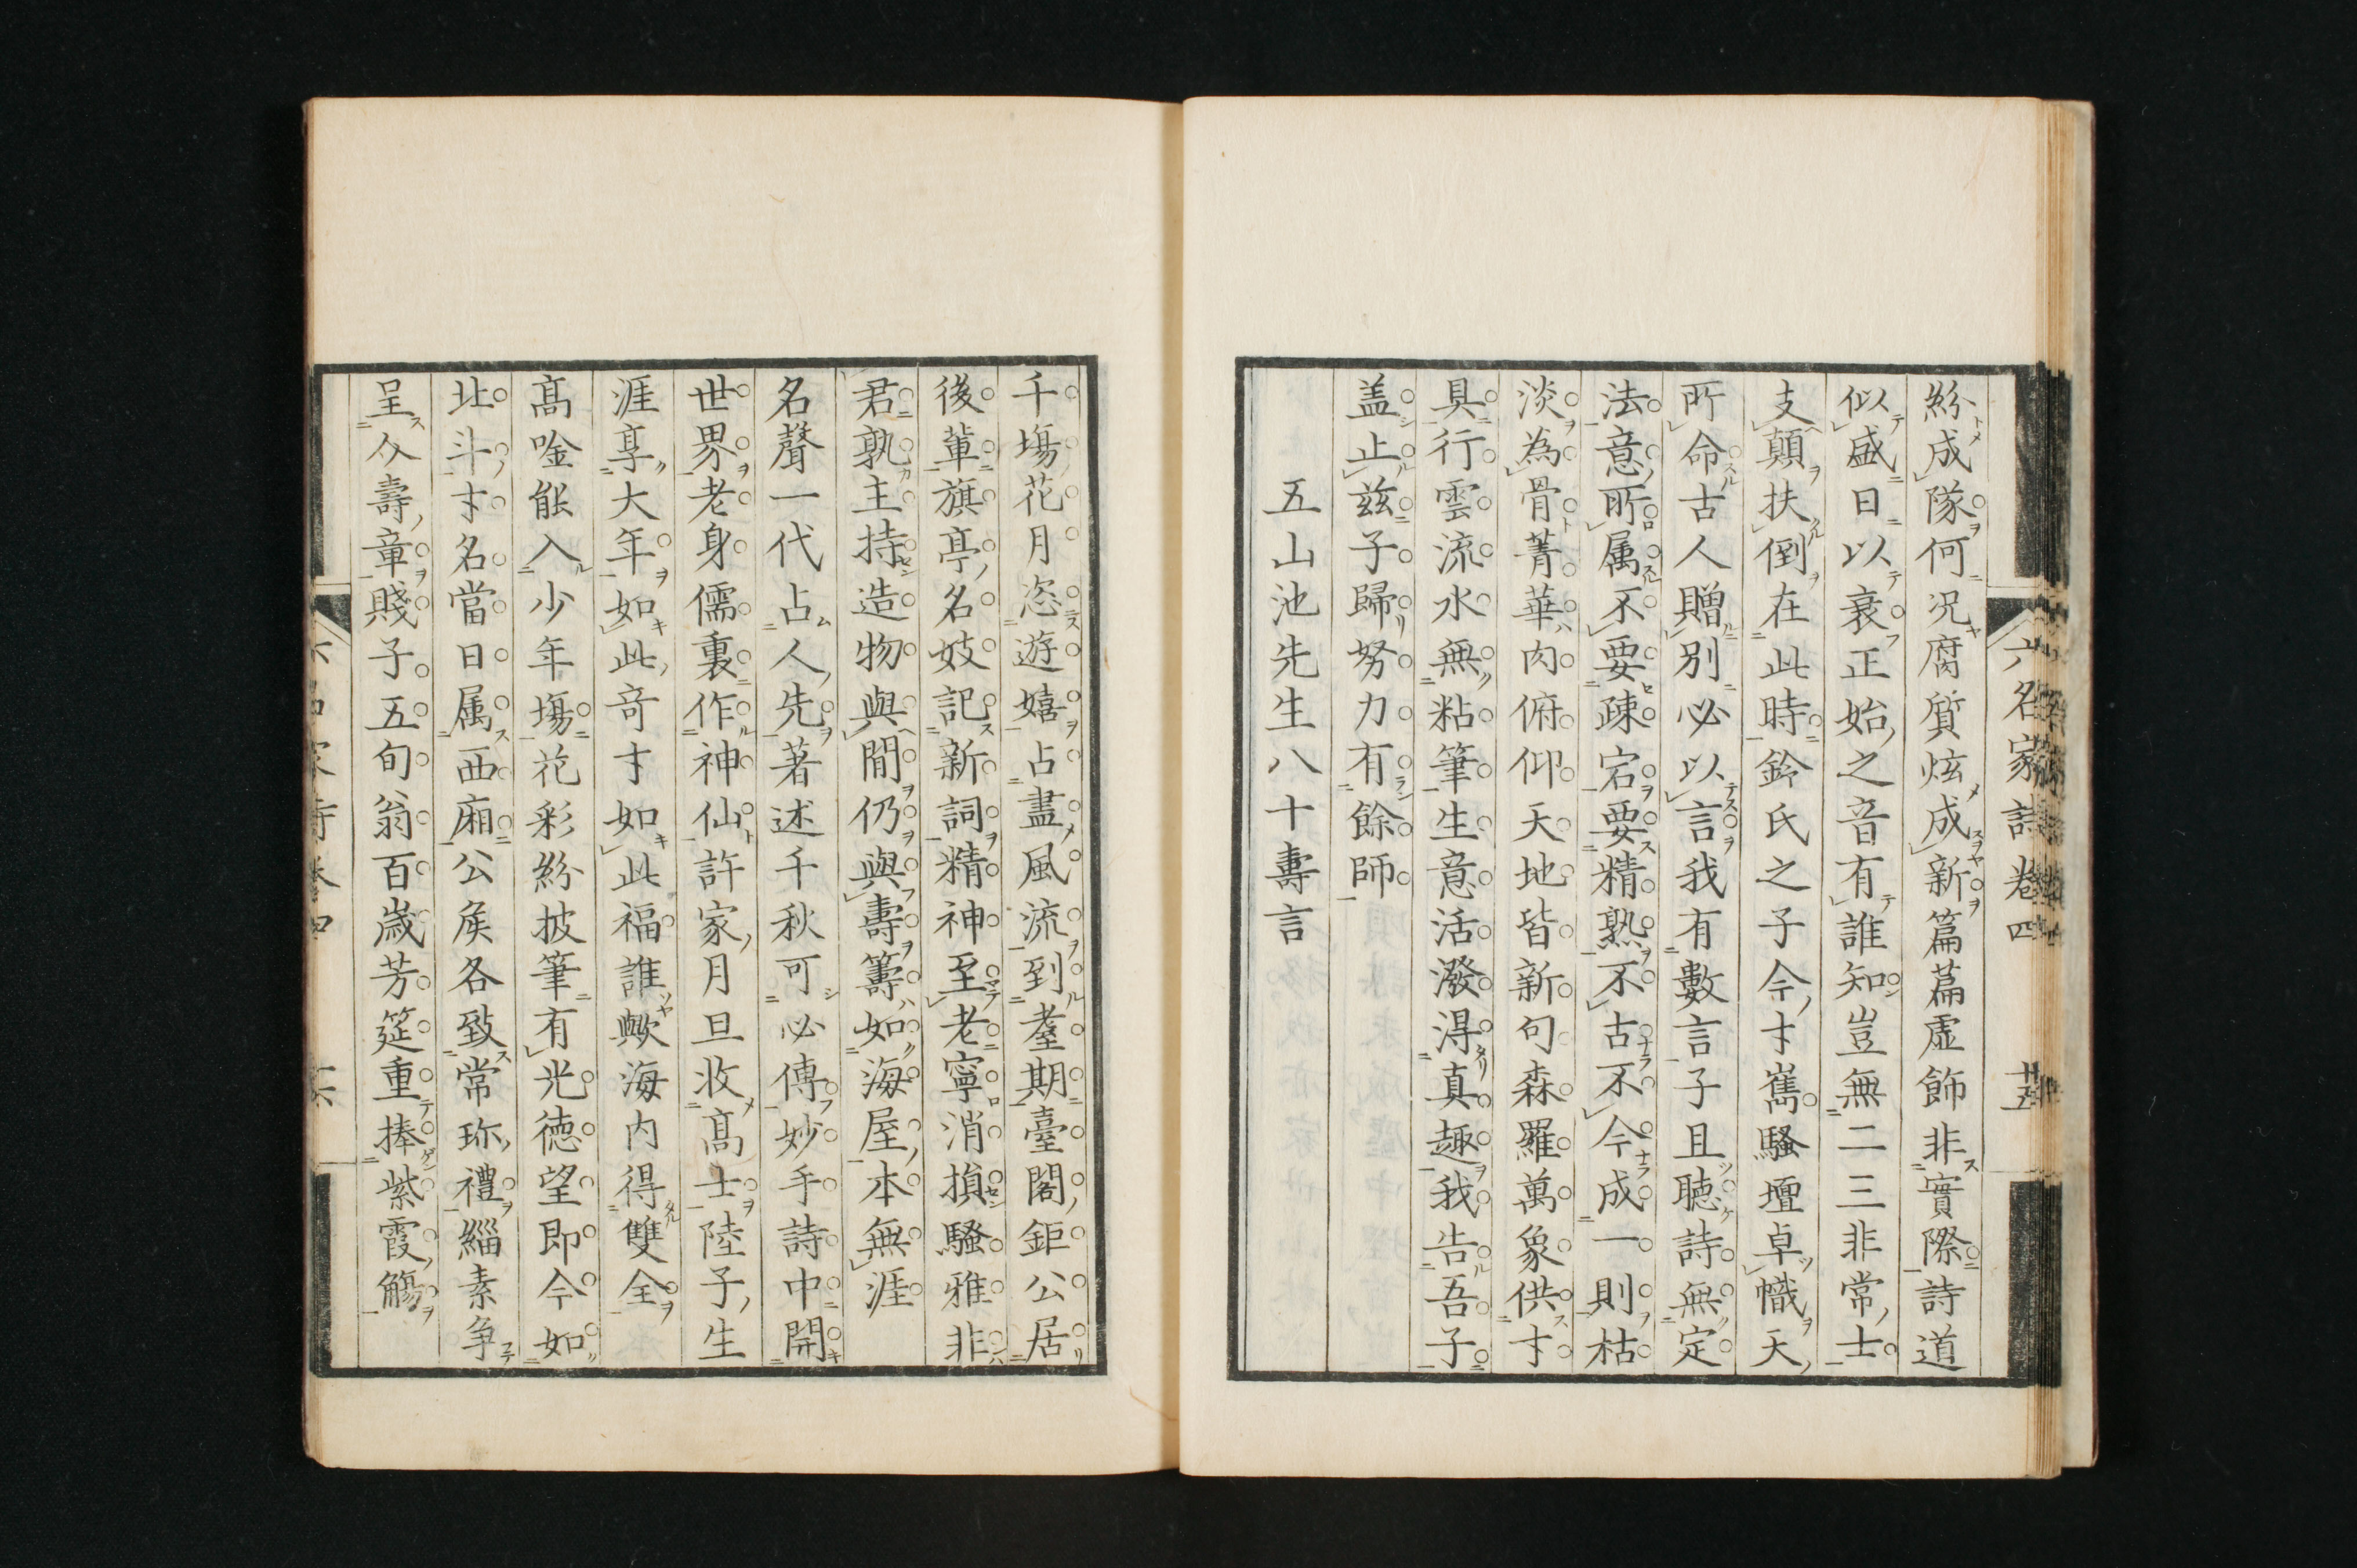 六名家詩卷四 廿五
紛成隊何況腐質炫成新篇篇虛飾非實際詩道
似盛日以衰正始之音有誰知豈無二三非常士
支顛扶倒在此時鈴氏之子今才嶲騷壇卓幟天
所命古人贈別必以言我有數言子且聴詩無定
法意所属不要疎宕要精熟不古不今成一則枯
淡為骨菁華肉俯仰天地皆新句森羅萬象供才
具行雲流水無粘筆生意活潑淂真趣我告吾子
盖止兹子歸努力有餘師
五山池先生八十壽言
千塲花月恣遊嬉占盡風流到耋期臺閣鉅公居
後軰旗亭名妓記新詞精神至老寧消損騷雅非
君孰主持造物與閒仍與壽籌如海屋本無涯
名聲一代占人先著述千秋可必傳妙手詩中開
世界老身儒裏作神仙許家月旦收髙士陸子生
涯享大年如此竒才如此福誰歟海内得雙全
髙唫能入少年塲花彩紛披筆有光徳望即今如
北斗才名當日属西廂公矦各致常珎禮緇素争
呈仌壽章賤子五旬翁百歳芳筵重捧紫霞觴